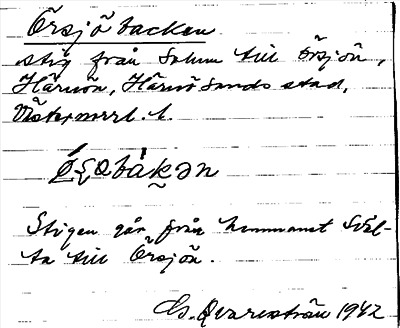 Örsjöbacken
stig från Solum till Örsjön,
Härnön, Härnösands stad,
Västernorrl. l.
Stigen går från hemmanet Sväl-
ta till Örsjön.
G. Qvarnström 1942